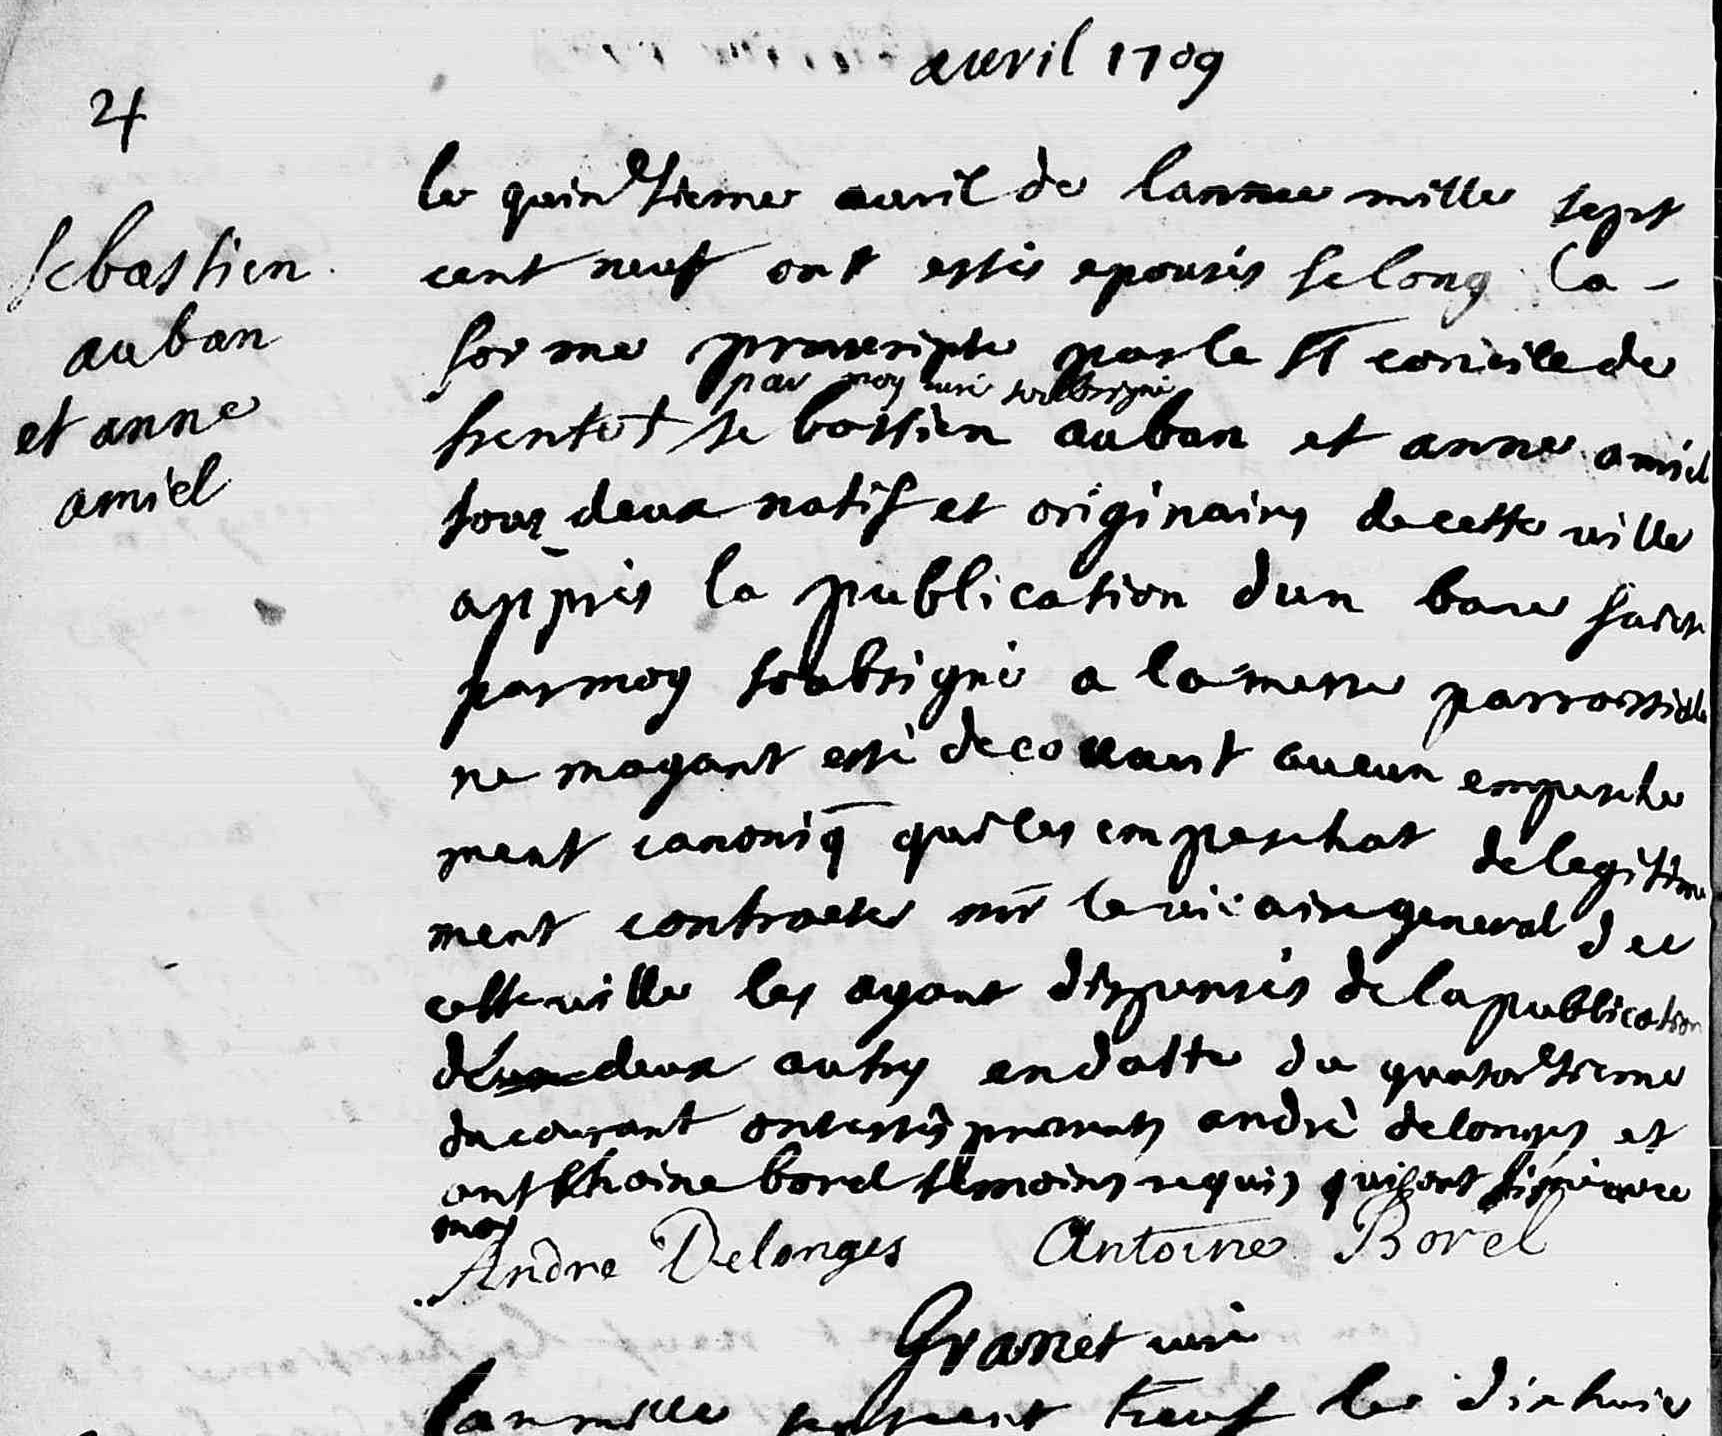 avril 1709
24
sebastien
auban
et anne
amiel
le quinzieme avril de lannee mille sept
cent neuf ont estés epousés selong la -
forme prescripte par le st concile de
par moy curé soubsigné
trente + sebastien auban et anne amiel
tous deux natif et originaires de cette ville
apprés la publication dun banc faicte
par moy soubsigné a la messe parroissiale
ne mayant esté decouvert aucun empeche
ment canoniq̄ qui les empeschat de legitime
ment contracter mr le vicaire general de
cette ville les ayant dispensés de la publication
deux autres en datte du quatorzieme
du courant ont estés presents andré delonges et
anthoine borel temoins requis qui sont signés avec
moy
Andre Delonges Antoine Borel
Granet curé
lan mille sept cent neuf le dix huit